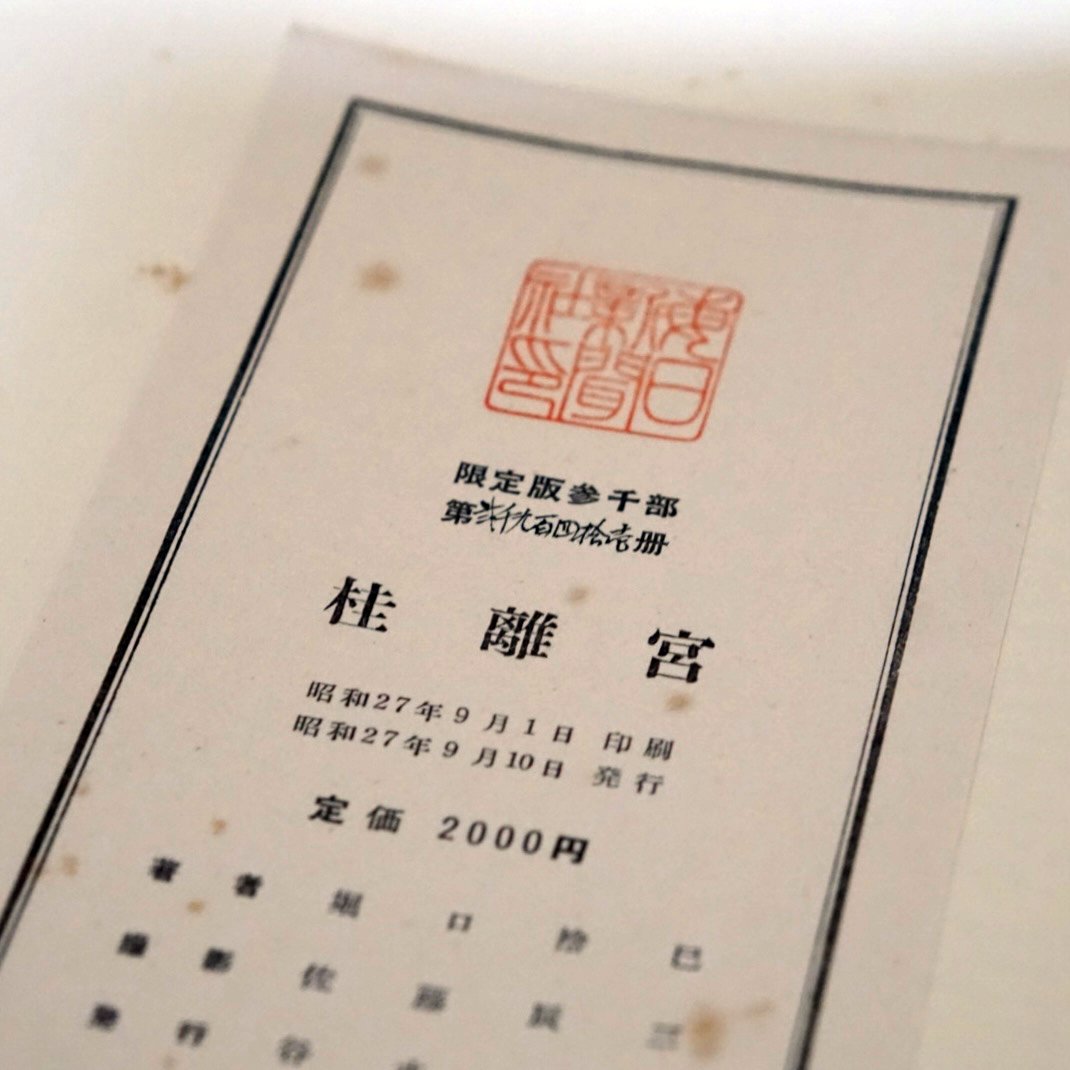 限定版参千部
第弐仟九百四拾壱册
桂離宮
昭和27年9月1日 印刷
昭和27年9月10日 発行
定価 2000円
著者 堀口捨巳
撮影 佐藤辰三
発行